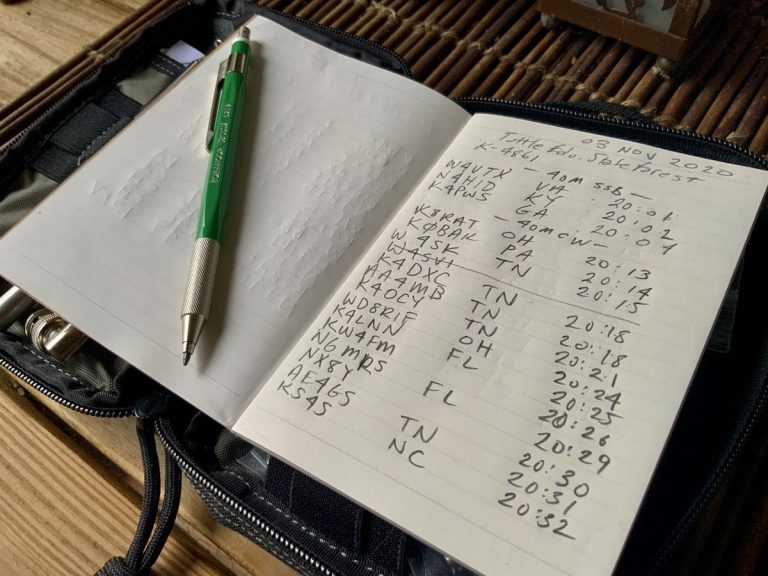 03 NOV 2020
Tuttle Edu. State
K-4861
— 40m SSB —
W4VTX VA 20:01
N4HID KY 20:02
K4PWS GA 20:04
— 40m CW —
K8RAT OH 20:13
KØBAK PA 20:14
W4SK TN 20:15
W4SVI
K4DXC TN 20:18
AA4MB TN 20:18
K4OCY TN 20:21
WD8RIF OH 20:24
K4LNN FL 20:25
KW4FM 20:26
N6MRS FL 20:29
NX8Y 20:30
AE4GS TN 20:31
KS4S NC 20:32